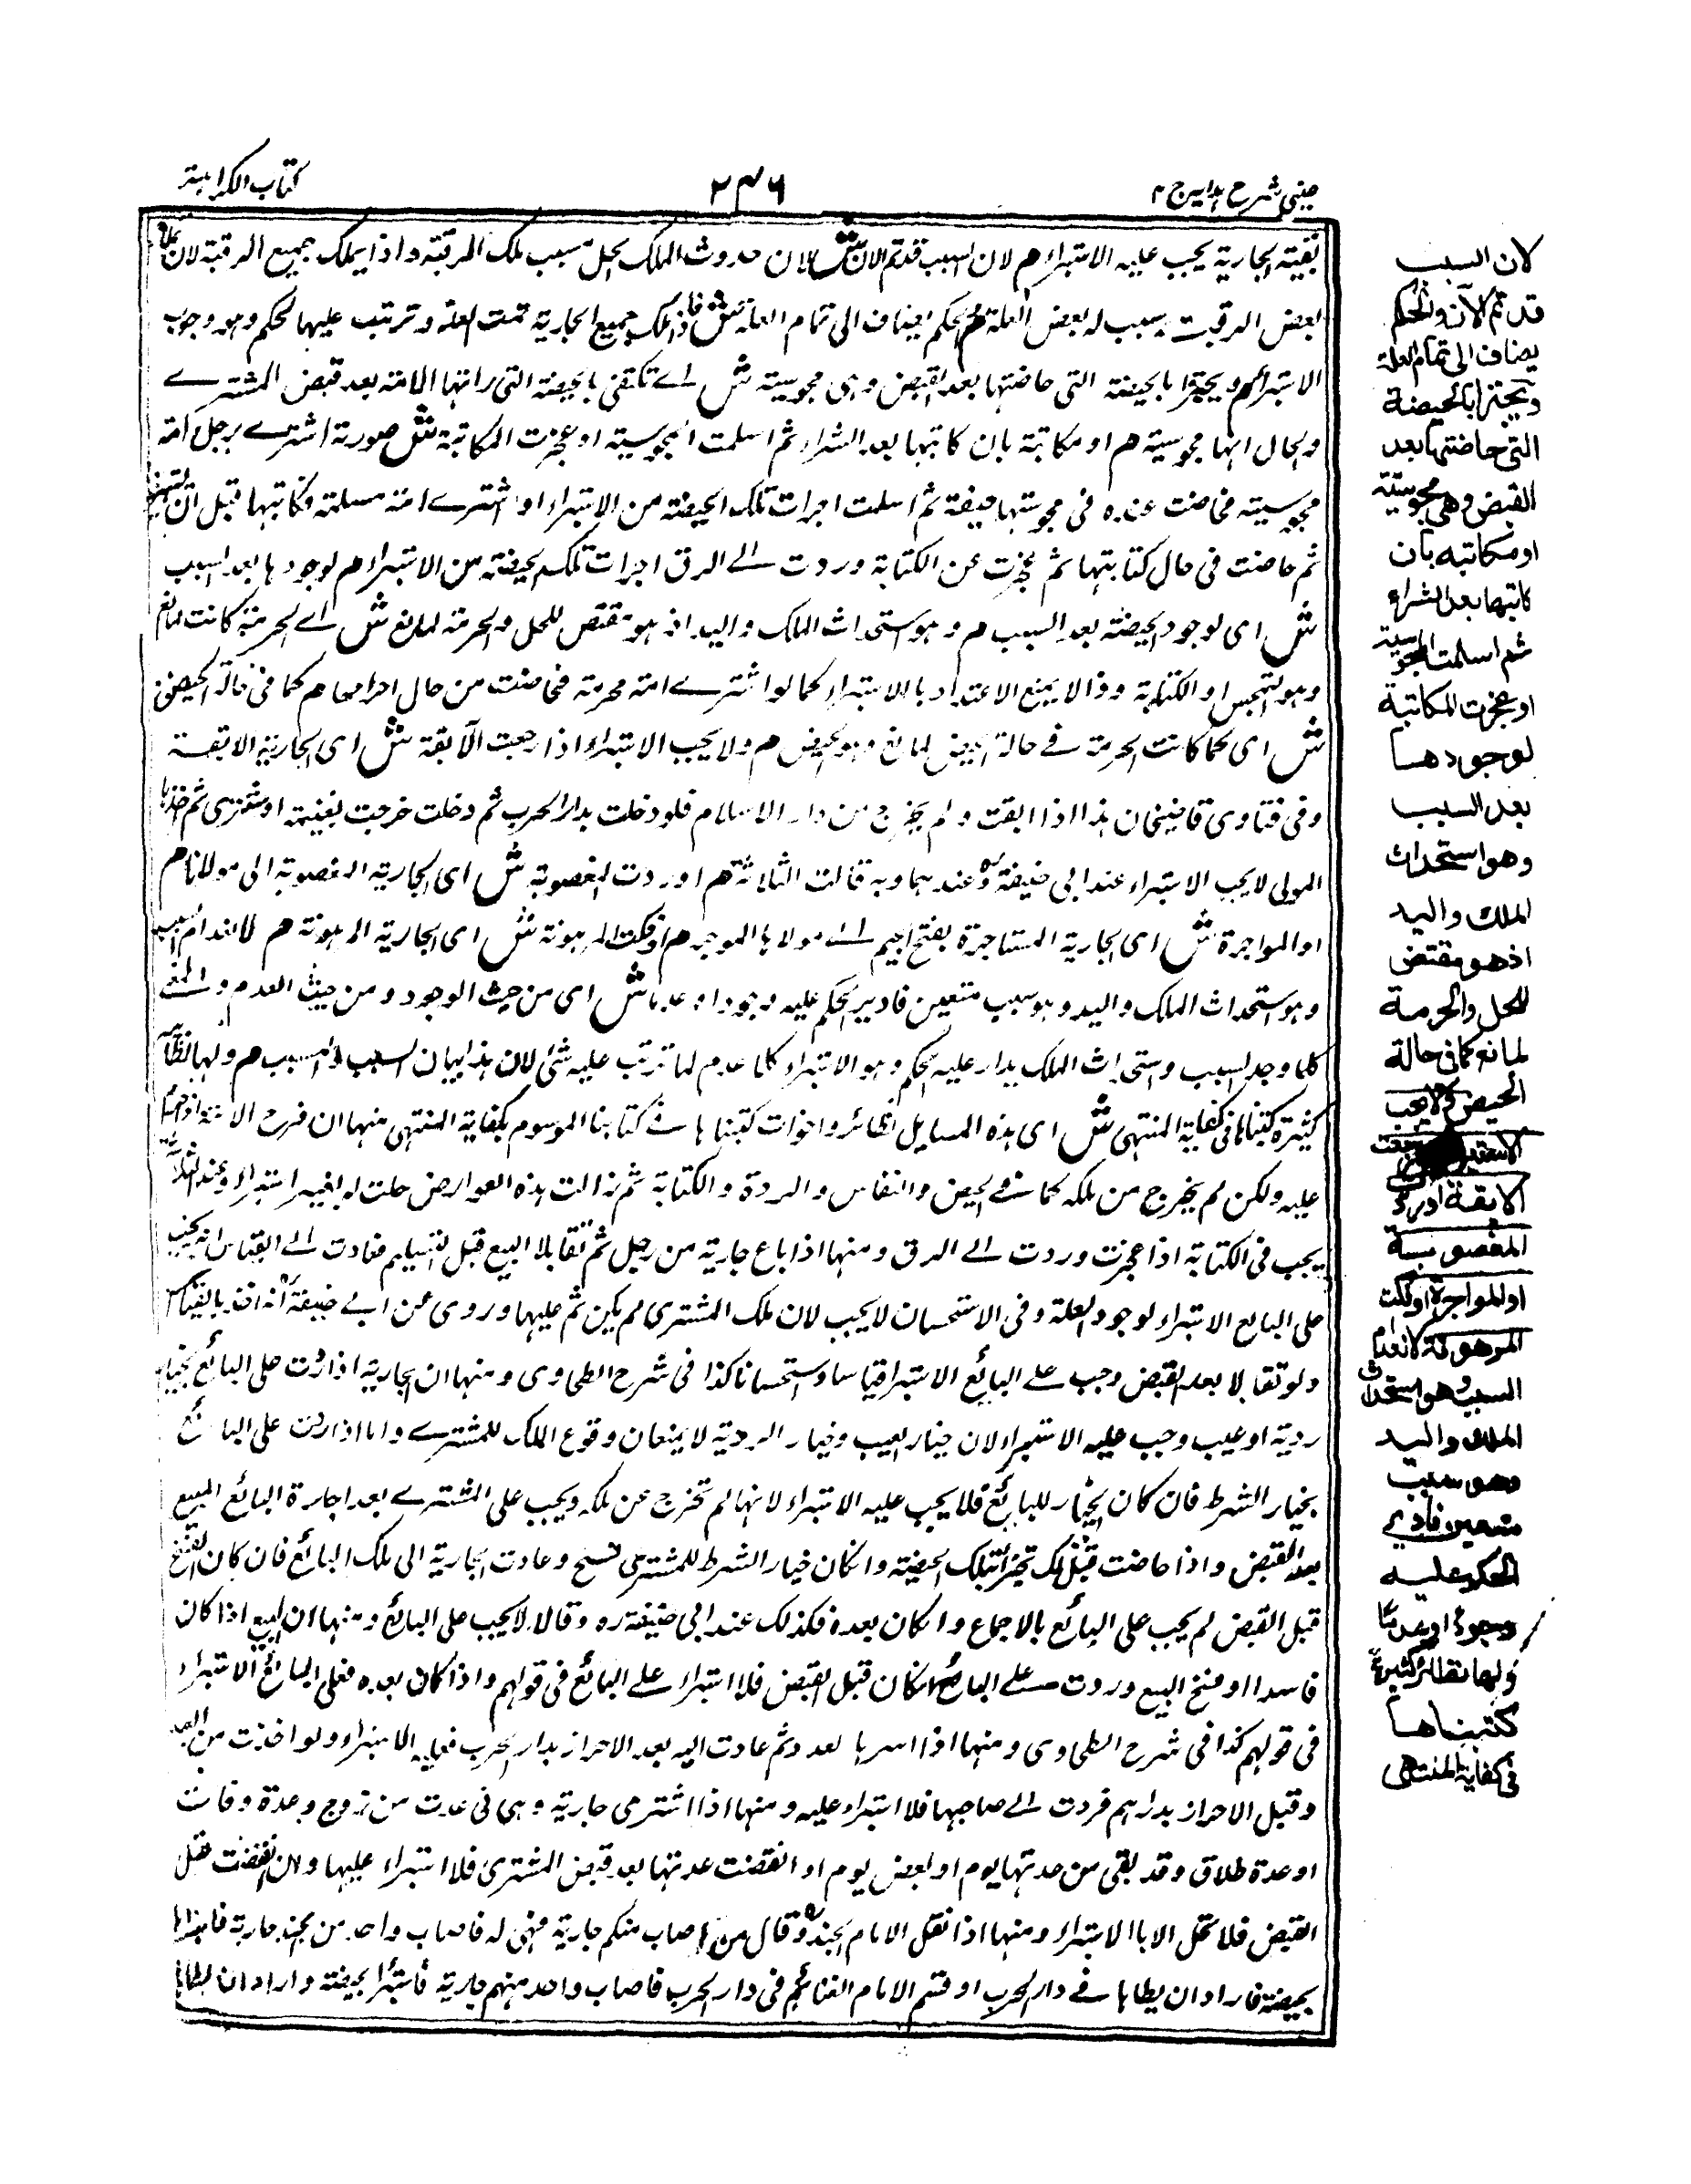 عيني شرح هدايه ج ٤
٢٤٦
كتاب الكراهية
بقية الجارية يجب عليه الاستبراء هم لان السبب قد تم الان ش لان حدوث الملك الحل بسبب ملك الرقبة واذا يملك جميع الرقبة لان ملك
بعض الرقبة سبب له بعض العلة هم والحكم يضاف الى تمام العلة ش فاذا ملك جميع الجارية تمت العلة وترتب عليها الحكم وهو وجوب
الاستبراء هم ويجتزا بالحيضة التى حاضتها بعد القبض وهى مجوسية ش اے تكتفى بالحيضة التى راتها الامة بعد قبض المشترے
والحال انها مجوسية هم او مكاتبة بان كاتبها بعد الشراء ثم اسلمت المجوسية او عجزت المكاتبة ش صورته اشترے رجل امة
مجوسية فحاضت عنده فى مجوسيتها حيضة ثم اسلمت اجزات تلك الحيضة من الاستبراء او اشترے امة مسلمة وكاتبها قبل ان
ثم حاضت فى حال كتابتها ثم عجزت عن الكتابة وردت الے الرق اجزات تلك الحيضة من الاستبراء هم لوجودها بعد السبب
ش اى لوجود الحيضة بعد السبب هم وهو استحداث الملك واليد اذ هو مقتض للحل والحرمة لمانع ش اے الحرمة كانت لمانع
وهو التمجس او الكتابة وذا لا يمنع الاعتداد بالاستبراء كما لو اشترے امة محرمة فحاضت من حال احرامها هم كما فى حالة الحيض
ش اى كما كانت الحرمة فے حالة الحيض لمانع وهو الحيض هم ولا يجب الاستبراء اذا رجعت الآبقة ش اى الجارية الابقة
وفى فتاوى قاضيخان هذا اذا ابقت ولم يخرج من دار الاسلام فلو دخلت بدار الحرب ثم دخلت خرجت بغنيمة او مشترى ثم اخذها
المولى لا يجب الاستبراء عند ابى حنيفة رہ وعندهما وبه قالت الثلاثة هم او ردت المغصوبة ش اى الجارية المغصوبة الى مولاها هم
او المواجرة ش اى الجارية المستاجرة بفتح الجيم الے مولاها الموجر هم او فكت المرهونة ش اى الجارية المرهونة هم لانعدام السبب
وهو استحداث الملك واليد وهو سبب متعين فادير الحكم عليه وجودا وعدما ش اى من حيث الوجود ومن حيث العدم والمعنے
كلما وجد السبب واستحداث الملك يدار عليه الحكم وهو الاستبراء كلما عدم لما ترتب عليه شئ لان هذا بيان السبب والمسبب هم ولها نظائر
كثيرة كتبناها فى كفاية المنتهى ش اى هذه المسايل نظائر واخوات كتبناها فے كتابنا الموسوم بكفاية المنتهى منها ان فرج الامة اذا حرم
عليه ولكن لم يخرج من ملكه كما فے الحيض والنفاس والردة والكتابة ثم زالت هذه العوارض حلت له بغير استبراء وعند الثلاثة
يجب فى الكتابة اذا عجزت وردت الے الرق ومنها اذا باع جارية من رجل ثم تقايلا البيع قبل التسليم فعادت الے القياس انه يجب
على البايع الاستبراء لوجود العلة وفى الاستحسان لا يجب لان ملك المشترى لم يكن ثم عليها وروى عن ابے حنيفة رہ انه اخذ بالقياس
ولو تقايلا بعد القبض وجب علے البائع الاستبراء قياسا واستحسانا كذا فى شرح الطحاوى ومنها ان الجارية اذا ردت على البائع بخيار
روية او عيب وجب عليه الاستبراء لان خيار العيب وخيار الروية لا يمنعان وقوع الملك للمشترے واما اذا ردت على البائع
بخيار الشرط فان كان الخيار للبائع فلا يجب عليه الاستبراء لانها لم تخرج عن ملكه ويجب على المشترے بعد اجازة البائع المبيع
بعد القبض واذا حاضت قبل ذلك تجزا بتلك الحيضة وان كان خيار الشرط للمشترى فسخ وعادت الجارية الى ملك البائع فان كان الفسخ
قبل القبض لم يجب على البائع بالاجماع وان كان بعده فكذلك عند ابى حنيفة رہ وقالا لا يجب على البائع ومنها ان البيع اذا كان
فاسدا او فسخ البيع وردت علے البائع ان كان قبل القبض فلا استبراء علے البائع فى قولهم واذا كان بعده فعلى البائع الاستبراء
فى قولهم كذا فى شرح الطحاوى ومنها اذا اسرها العدو ثم عادت اليه بعد الاحراز بدار الحرب فعليه الاستبراء ولو اخذت من العدو
وقبل الاحراز بدارهم فردت الے صاحبها فلا استبراء عليه ومنها اذا اشترى جارية وهى فى عدت من زوج وعدة وفات
او عدة طلاق وقد بقى من عدتها يوم او بعض يوم او انقضت عدتها بعد قبض المشترى فلا استبراء عليها وان انقضت قبل
القبض فلا تحل الا بالاستبراء ومنها اذا نفل الامام الجند وقال من اصاب منكم جارية فهى له فاصاب واحد من الجند جارية فاستبراها
بحيضة فاراد ان يطاها فے دار الحرب او قسم الامام الغنائم فى دار الحرب فاصاب واحد منهم جارية فاستبرا بحيضة واراد ان يطاها
لان السبب
قد تم الآن والحكم
يضاف الى تمام العلة
ويجتزا بالحيضة
التى حاضتها بعد
القبض وهى مجوسية
او مكاتبه بان
كاتبها بعد الشراء
ثم اسلمت المجوسية
او عجزت المكاتبة
لوجودها
بعد السبب
وهو استحداث
الملك واليد
اذ هو مقتض
للحل والحرمة
لمانع كما فى حالة
الحيض ولا يجب
الاستبراء رجعت
الابقة او ردت
المغصوبة
او المواجرة او فكت
المرهونة لانعدام
السبب وهو استحداث
الملك واليد
وهو سبب
متعين فادير
الحكم عليه
وجودا وعدما
ولها نظائر كثيرة
كتبناها
فى كفاية المنتهى